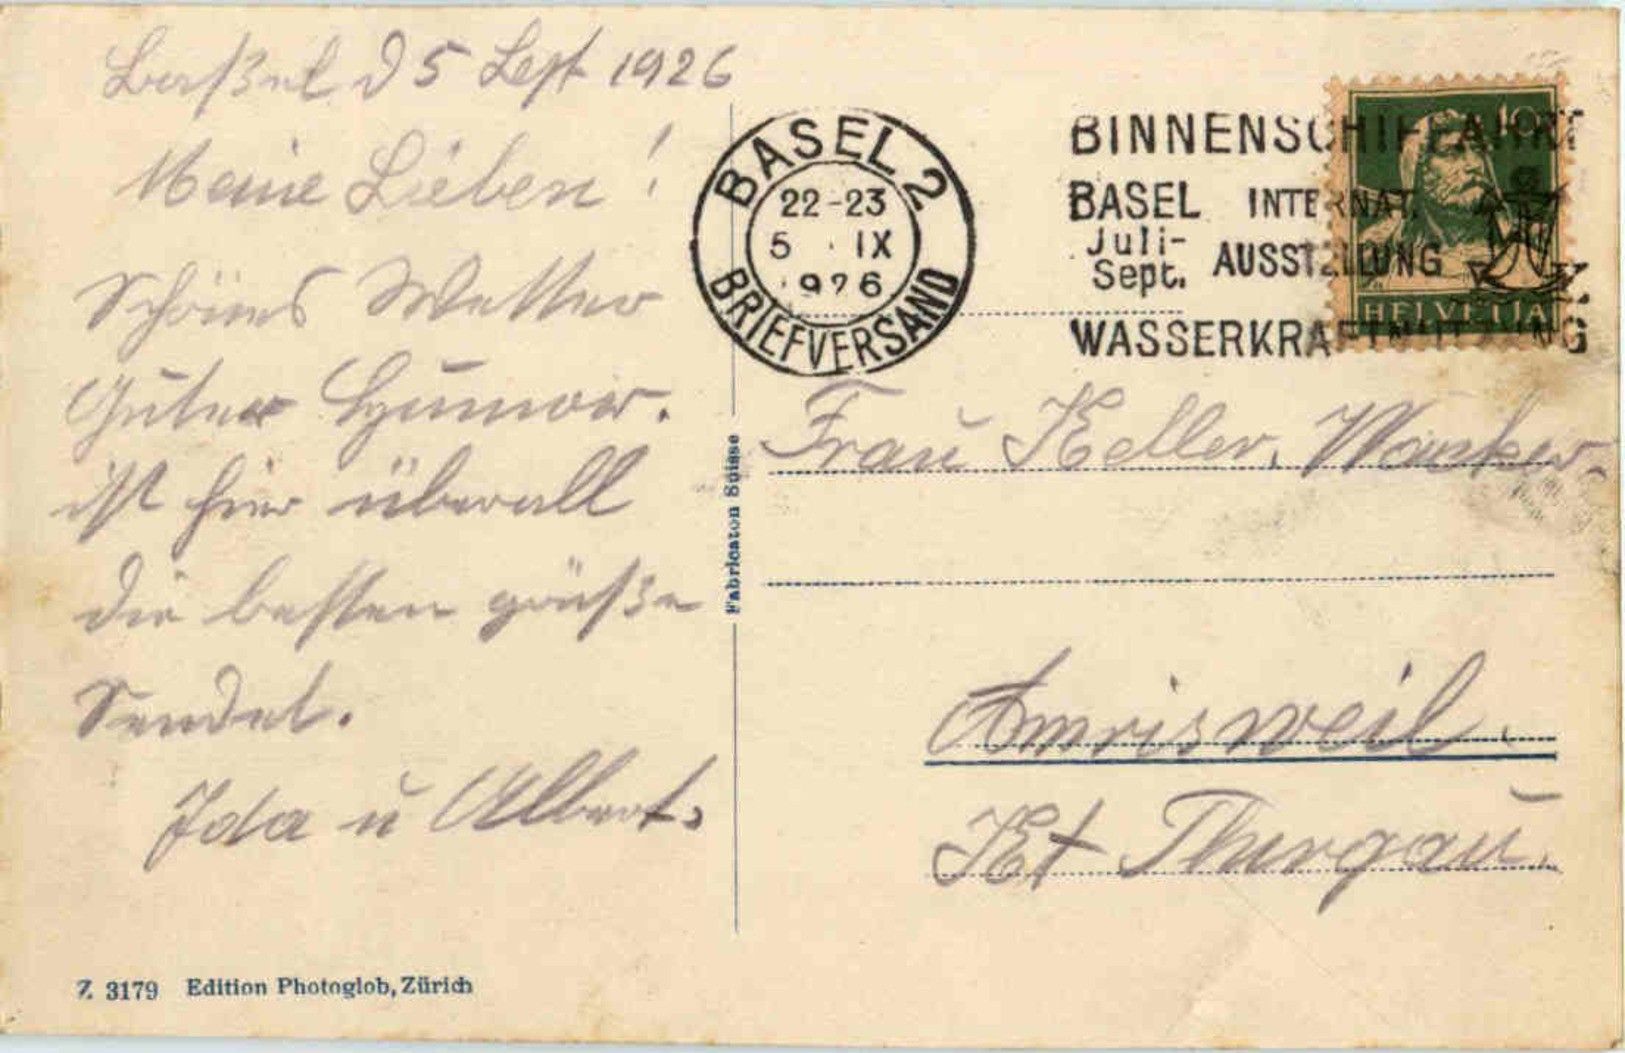 Baßel d 5 Sept 1926
Meine Lieben!
Schönes Wetter
Guter Humor.
ist hier überall
die besten grüße
Sendet.
Ida u Albert.
BASEL 2
22-23
5 · IX
1926
BRIEFVERSAND
BINNENSCHIFFAHRT
BASEL INTERNAT.
Juli-
Sept. AUSSTELLUNG
WASSERKRAFTNUTZUNG
10
HELVETIA
Fabrication Suisse
Frau Keller,
Amrisweil.
Kt Thurgau.
Z 3179 Edition Photoglob, Zürich